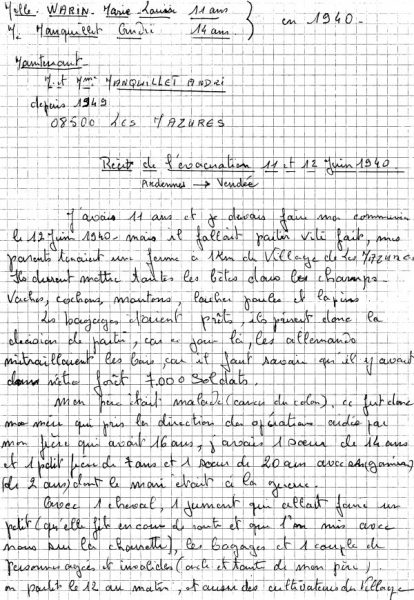 Melle. WARIN. Marie Louise 11 ans
M. Manquillet André 14 ans.
en 1940.
Maintenant.
M. et Mme MANQUILLET ANDRÉ
depuis 1949
08500 LES MAZURES
Récit de l'évacuation 11 et 12 Juin 1940.
Ardennes → Vendée
J'avais 11 ans et je devais faire ma communion
le 12 Juin 1940 - mais il fallait partir vite fait, mes
parents tenaient une ferme à 1km du Village de LES MAZURES.
Ils durent mettre toutes les bêtes dans les champs.
Vaches, cochons, moutons, lâcher poules et lapins.
Les bagages étaient prêts, ils prirent donc la
décision de partir, car ce jour là, les allemands
mitraillaient les bois, car il faut savoir qu'il y avait
dans nôtre forêt 7.000 Soldats.
Mon père était malade (cancer du colon), ce fut donc
ma mère qui pris la direction des opérations aidée par
mon frère qui avait 16 ans, j'avais 1 soeur de 14 ans
et 1 petit frère de 7 ans et 1 soeur de 20 ans avec (gamin)
de 2 ans) dont le mari était à la guerre.
Avec 1 cheval, 1 jument qui allait faire un
petit (qu'elle fit en cours de route et que l'on mis avec
nous sur la charrette), les bagages et 1 couple de
personnes agées et invalides (oncle et tante de mon père).
on partit le 12 au matin, et aussi des cultivateurs du Village